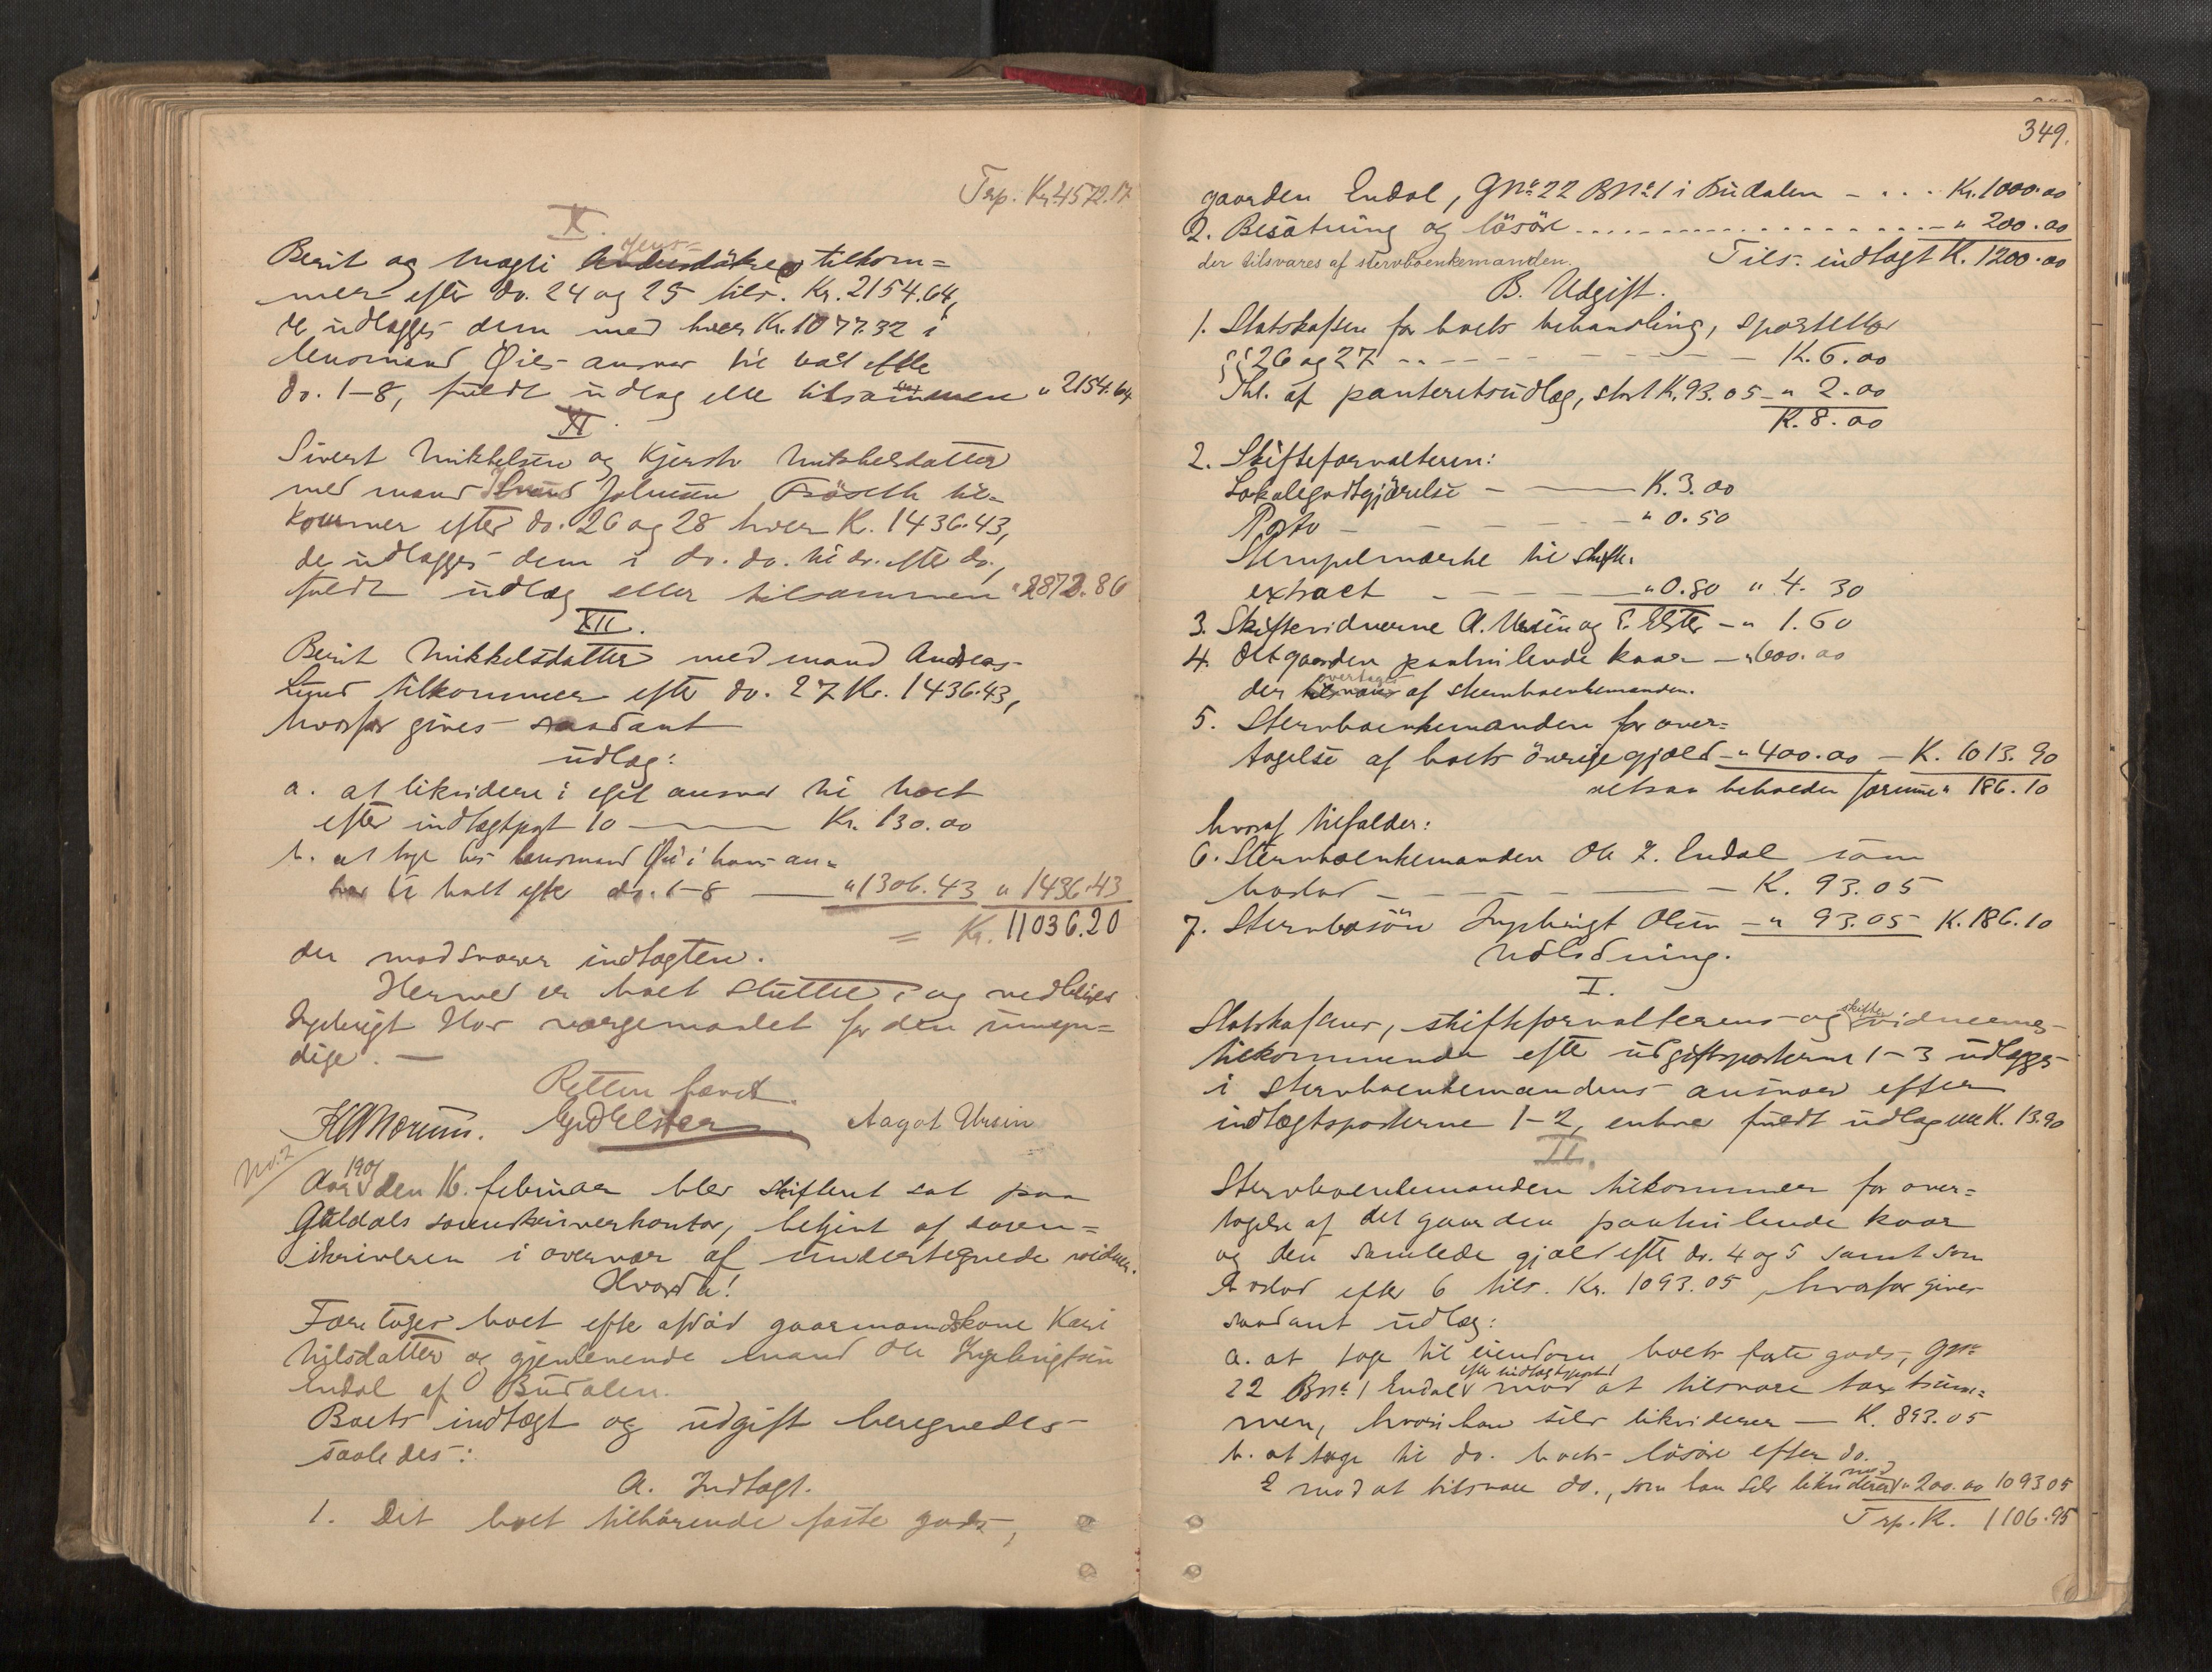 Trp. Kr. 4572.17
X.
Berit og Magli Jens- tilkom=
mer efter do. 24 og 25 tils. Kr. 2154.64,
de udlægges dem med hver Kr. 1077.32 i
lensmand Øies ansvar til boet efter
do. 1-8, fuldt udlæg eller tilsammen " 2154.64
XI.
Sivert Mikkelsen og Kjersti Mikkelsdatter
med mand Johnsen til-
kommer efter do. 26 og 28 hver Kr. 1436.43,
de udlægges dem i do. do. til do. efter do.,
fuldt udlæg eller tilsammen " 2872.86
XII.
Berit Mikkelsdatter med mand Andreas
Lund tilkommer efter do. 27 Kr. 1436.43,
hvorfor gives saadant
udlæg:
a. at likvidere i eget ansvar til boet
efter indtægtpost 10 — Kr. 130.00
b. at tage hos lensmand Øie i hans an=
svar til boet efter do. 1-8 — " 1306.43 " 1436.43
= Kr. 11036.20
der modsvarer indtægten.
Hermed er boet sluttet og vedbliver
Ingebrigt Hov værgemaalet for den umyn=
dige. —
Retten hævet.
Aagot Ursin
No. 2
Aar 1901 den 16. februar blev skifteret sat paa
Guldals sorenskriverkontor, betjent af soren=
skriveren i overvær af undertegnede vidner.
Hvorda!
Foretoges boet efter afdød gaarmandskone Kari
Nilsdatter og gjenlevende mand Ole Ingebrigtsen
Endal af Budalen.
Boets indtægt og udgift beregnedes
saaledes:
A. Indtægt.
1. Det boet tilhørende faste gods,
349.
gaarden Endal, Gno. 22 Bno. 1 i Budalen - . . . Kr. 1000.00
2. Besætning og løsøre - " 200.00
der tilsvares af stervboenkemanden. Tils. indtægt K. 1200.00
B. Udgift.
1. Statskassen for boets behandling, sportellov
§§ 26 og 27 - - - K. 6.00
Thl. af panteretsudlæg, stort K. 93.05 - " 2.00
K. 8.00
2. Skifteforvalteren:
Lokalegodtgjørelse - — K. 3.00
Porto - - - " 0.50
Stempelmærke til skifte-
extract - - - " 0.80 " 4.30
3. Skiftevidnerne A. Ursin og E. Elster - " 1.60
4. Det gaarden paahvilende kaar - " 600.00
der overtages af stervboenkemanden.
5. Stervboenkemanden for over=
tagelse af boets øvrige gjæld - " 400.00 - K. 1013.90
altsaa beholden formue " 186.10
hvoraf tilfalder:
6. Stervboenkemanden Ole I. Endal som
boslod - - - K. 93.05
7. Stervbosøn Ingebrigt Olsen - " 93.05 K. 186.10
Udlodning.
I.
Statskassens, skifteforvalterens og skiftevidnernes
tilkommende efter udgiftsposterne 1-3 udlægges
i stervboenkemandens ansvar efter
indtægtsposterne 1-2, enhver fuldt udlæg med K. 13.90
II.
Stervboenkemanden tilkommer for over=
tagelse af det gaarden paahvilende kaar
og den samlede gjæld efter do. 4 og 5 samt som
boslod efter 6 tils. Kr. 1093.05, hvorfor gives
saadant udlæg:
a. at tage til eiendom boets faste gods, Gno.
22 Bno. 1 Endal efter indtægtspost 1 mod at tilsvare taxtsum=
men, hvori han selv likviderer — K. 893.05
b. at tage til do. boets løsøre efter do.
2 mod at tilsvare do., som han selv likviderer med " 200.00 1093 05
Trp. K. 1106.95